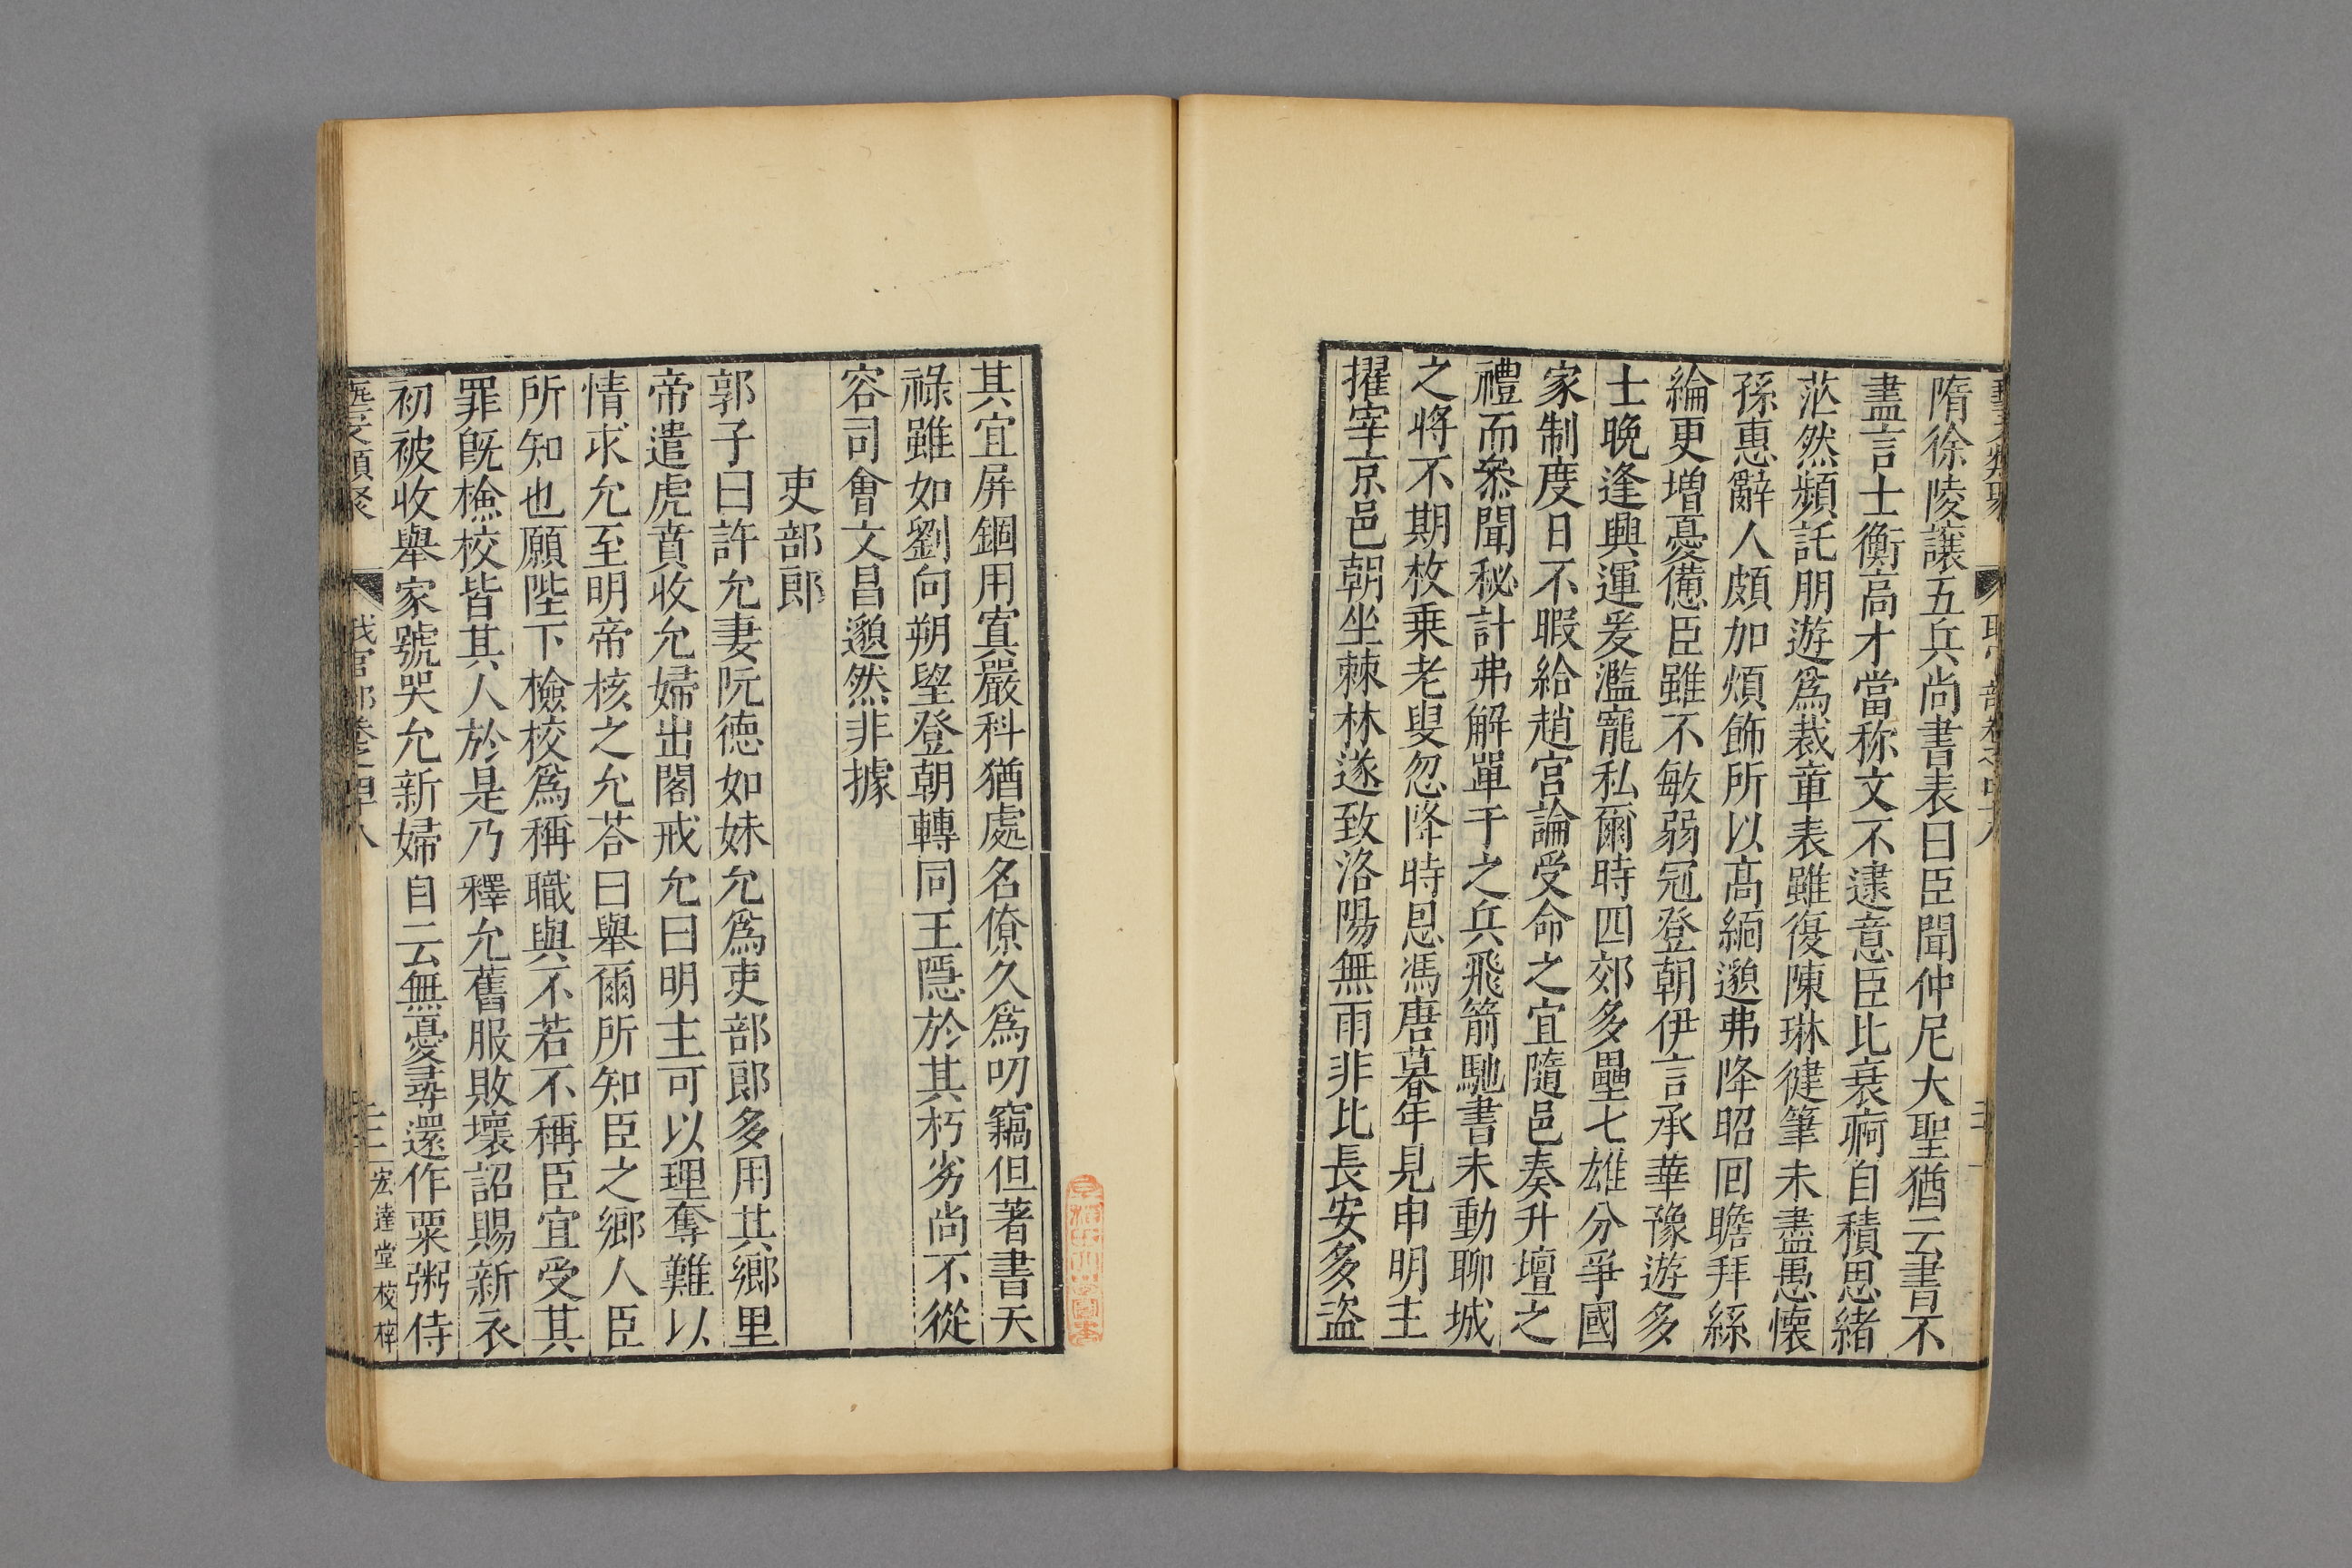 隋徐陵讓五兵尚書表曰臣聞仲尼大聖猶云書不
盡言士衡高才當称文不逮意臣比衰痾自積思緒
茫然頻託朋遊爲裁章表雖復陳琳健筆未盡愚懷
孫惠辭人頗加煩飾所以高緬邈弗降昭囘瞻拜絲
綸更增憂憊臣雖不敏弱冠登朝伊言承華豫遊多
士晚逢興運爰濫寵私爾時四郊多壘七雄分爭國
家制度日不暇給趙官論受命之宜隨邑奏升壇之
禮而叅聞秘計弗解單于之兵飛箭馳書未動聊城
之將不期枚乗老叟忽降時恩馮唐暮年見申明主
擢宰京邑朝坐棘林遂致洛陽無雨非比長安多盗
其宜屏錮用寘嚴科猶處名僚久爲叨竊但著書天
祿雖如劉向朔望登朝轉同王隱於其朽劣尚不從
容司會文昌邈然非據
吏部郎
郭子曰許允妻阮德如妹允爲吏部郎多用其鄉里
帝遣虎賁收允婦出閣戒允曰明主可以理奪難以
情求允至明帝核之允荅曰舉爾所知臣之鄉人臣
所知也願陛下檢校爲稱職與不若不稱臣宜受其
罪旣檢校皆其人於是乃釋允舊服敗壞詔賜新衣
初被收舉家號哭允新婦自云無憂尋還作粟粥侍
藝文類聚 職官部卷之四十八 宏達堂校梓